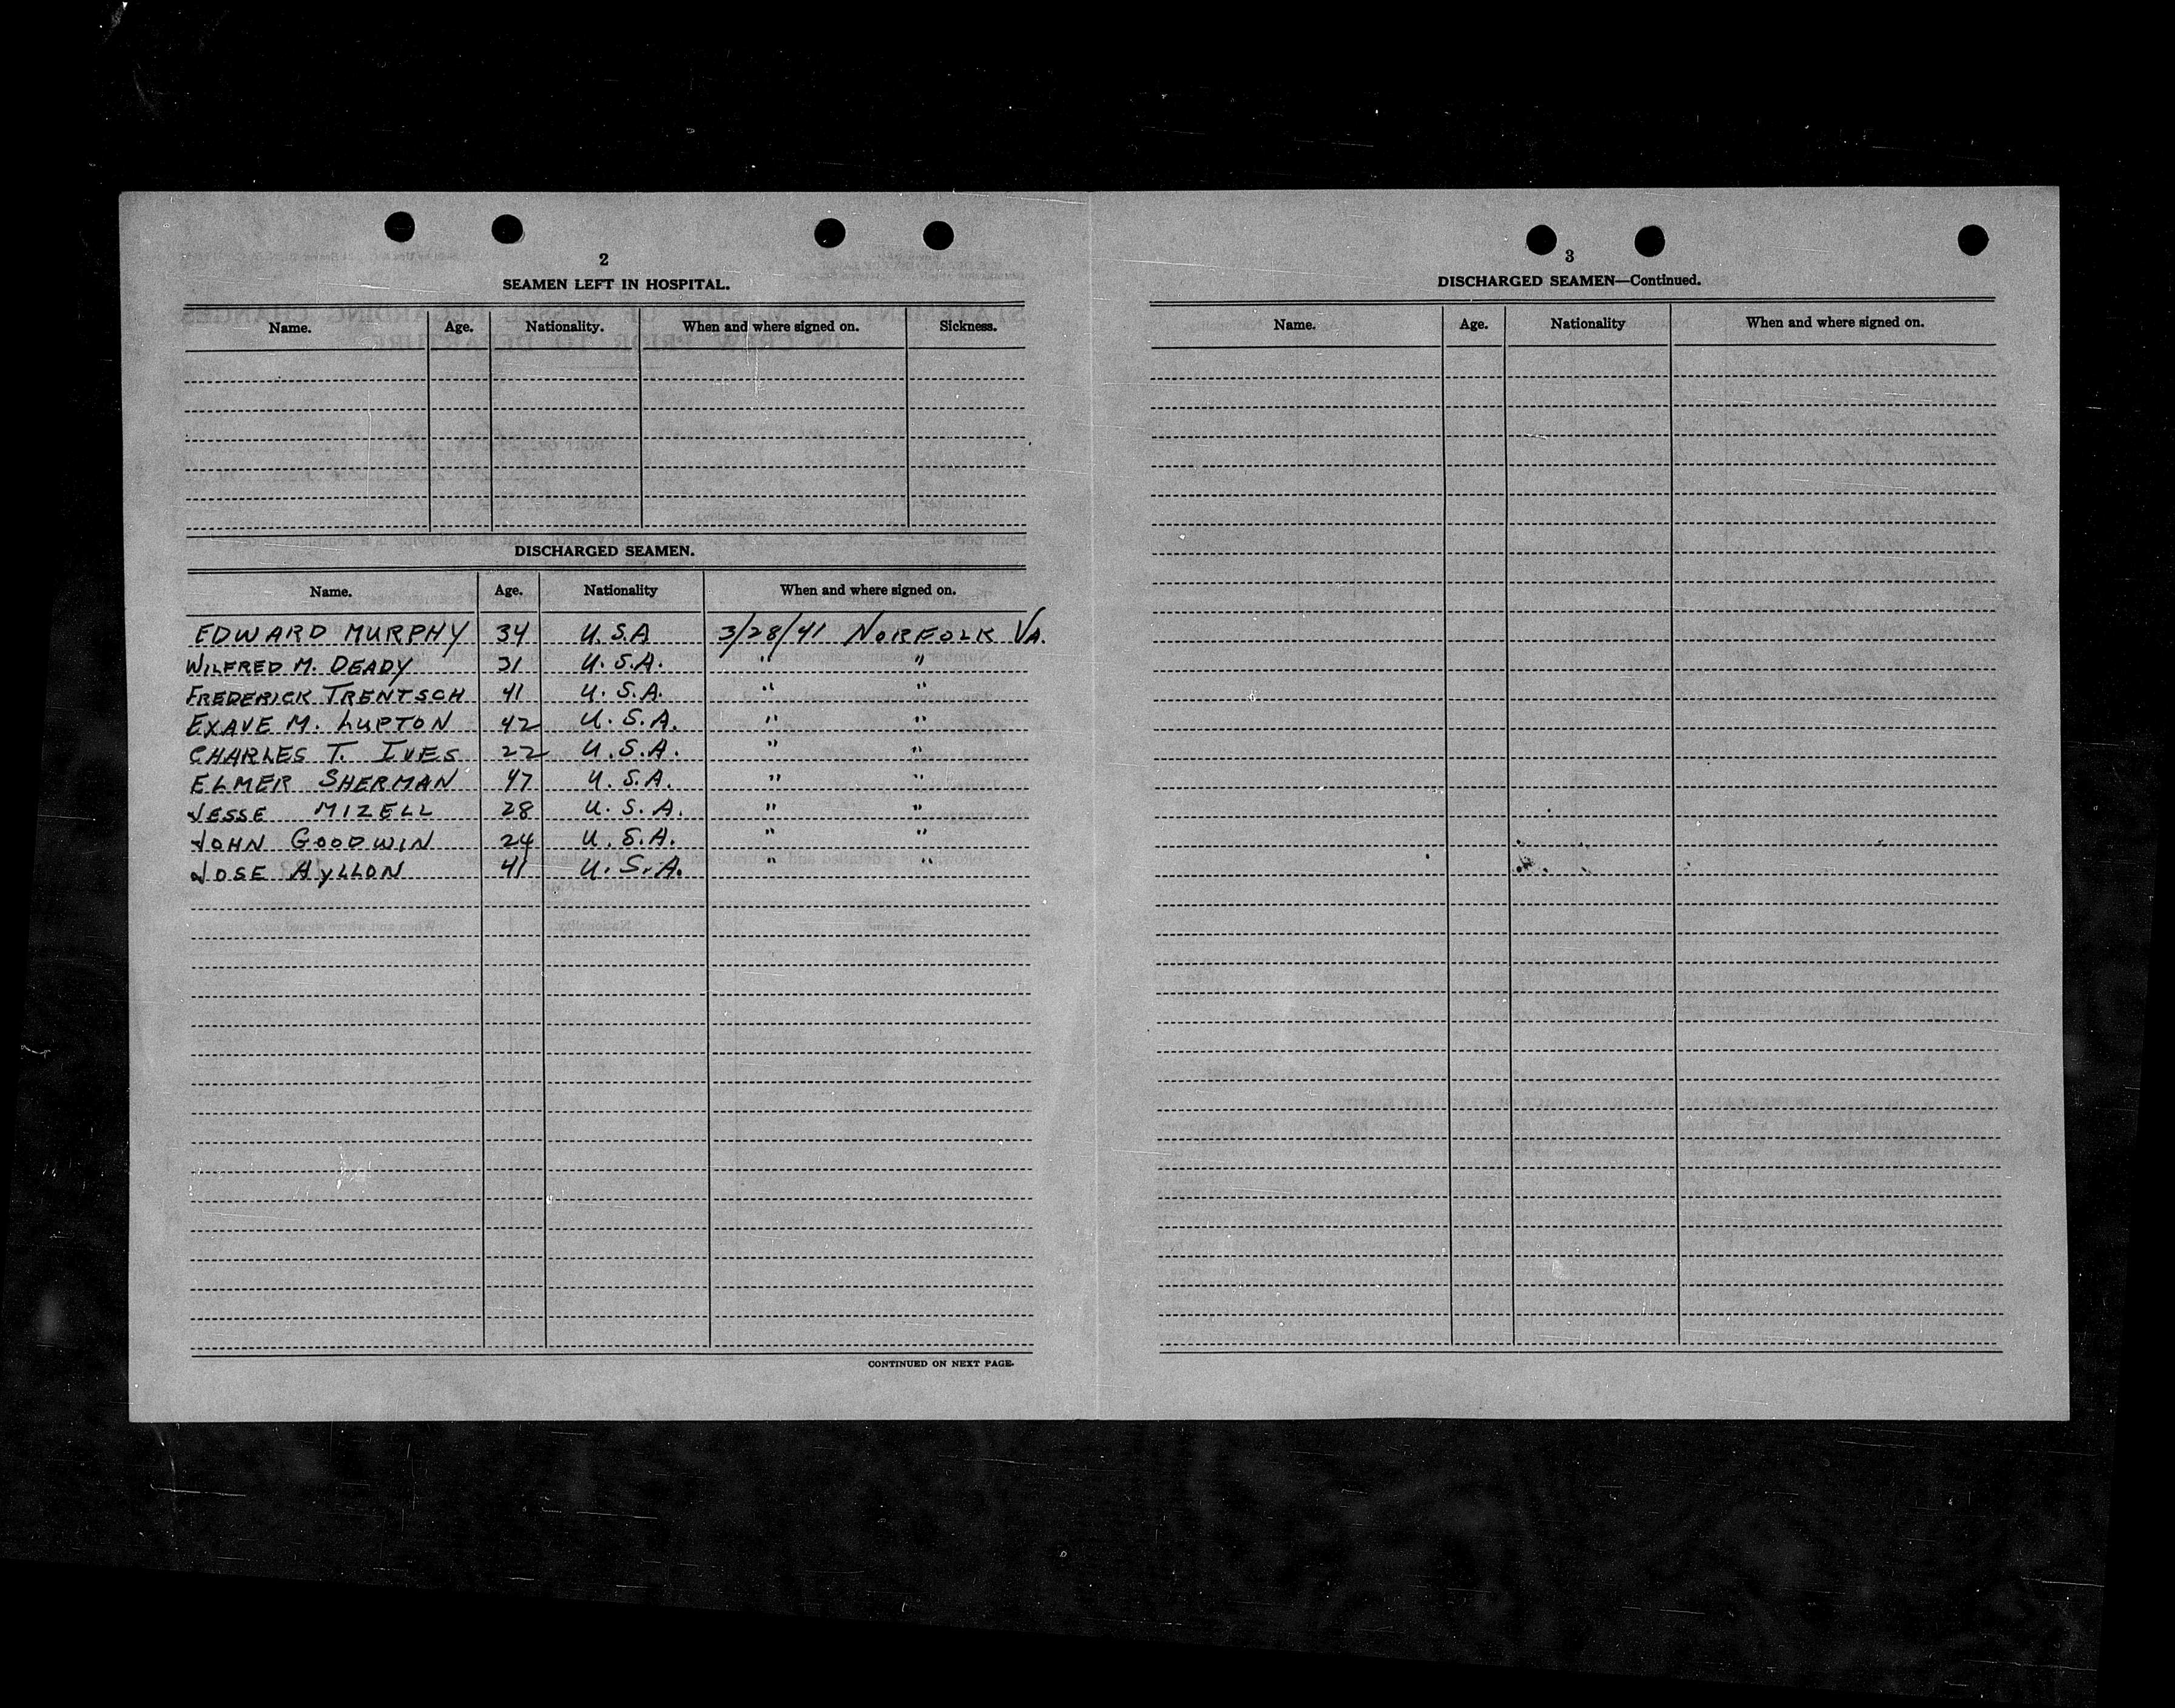 2
SEAMEN LEFT IN HOSPITAL.
Name. Age. Nationality. When and where signed on. Sickness.
DISCHARGED SEAMEN.
Name. Age. Nationality When and where signed on.
EDWARD MURPHY 34 U.S.A 3/28/41 NORFOLK VA.
WILFRED M. DEADY 31 U.S.A. " "
FREDERICK TRENTSCH 41 U.S.A. " "
EXAVE M. LUPTON 42 U.S.A. " "
CHARLES T. IVES 22 U.S.A. " "
ELMER SHERMAN 47 U.S.A. " "
JESSE MIZELL 28 U.S.A. " "
JOHN GOODWIN 24 U.S.A. " "
JOSE AYLLON 41 U.S.A. " "
CONTINUED ON NEXT PAGE.
3
DISCHARGED SEAMEN—Continued.
Name. Age. Nationality When and where signed on.